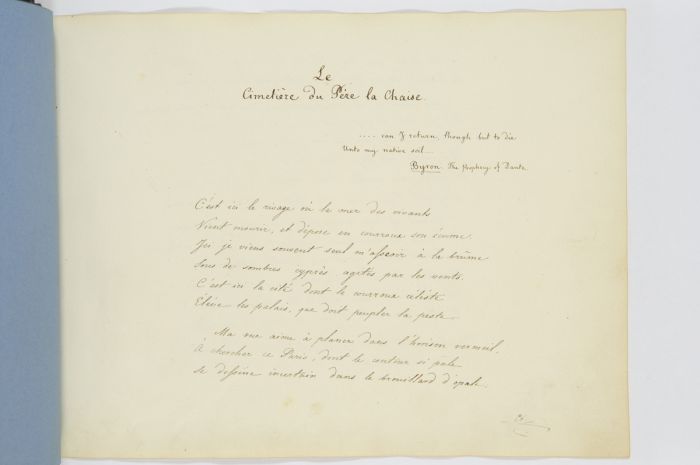 Le
Cimetière du Père la Chaise.
.... can I return, though but to die
Unto my native soil....
Byron. The Prophecy of Dante.
C'est ici le rivage où la mer des vivants
Vient mourir, et dépose en courroux son écume.
Ici je viens souvent seul m'asseoir à la brûme
Sous de sombres cyprès agités par les vents.
C'est ici la cité dont le courroux céleste
Élève les palais, que doit peupler la peste.
Ma vue aime à planer dans l'horison vermeil,
À chercher ce Paris, dont le contour si pale
Se dessine incertain dans le brouillard d'opale.